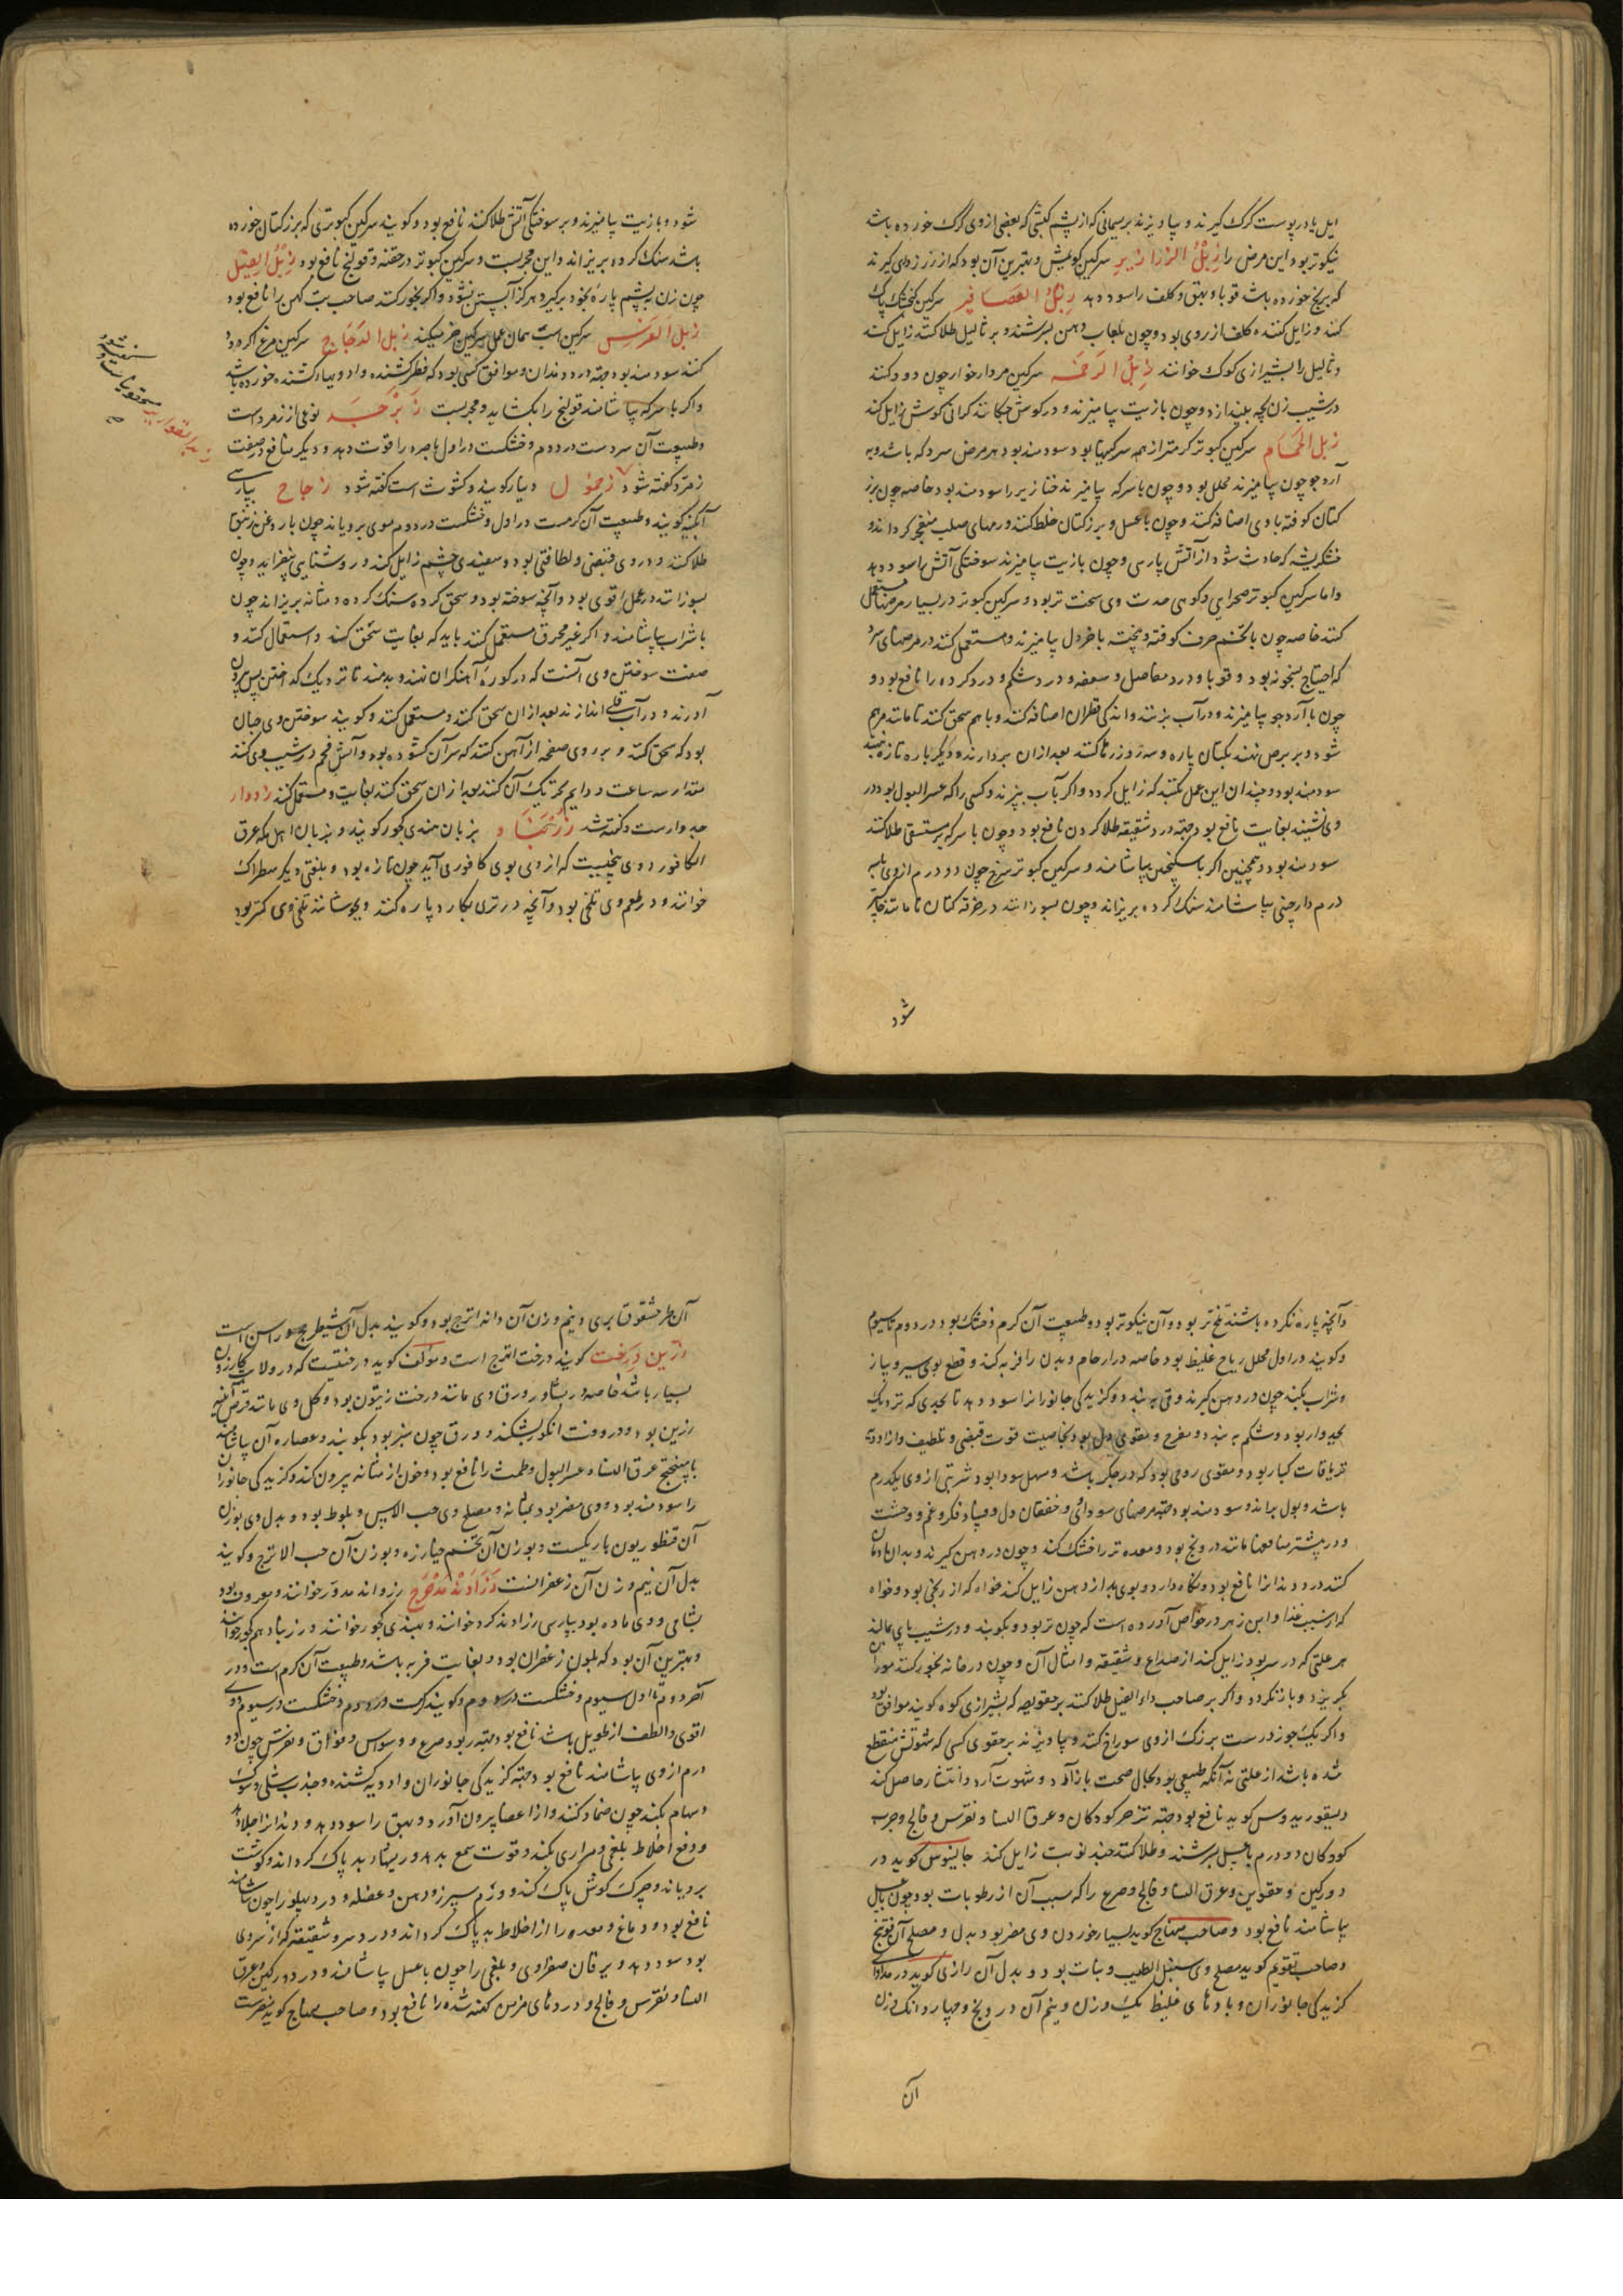 ایل یا در پوست گرگ گیرند و بیاویزند بریسمانی که از پشم کبشی که بعضی از وی گرگ خورده باشد
نیکوتر بود این مرض را زبل الزرازیر سرکین کویش و بهترین آن بود که از زرزوای گیرند
که برنج خورده باشد قوبا و بهق و کلف را سود دهد زبل العصافیر سرکین گنجشک پاک
کند و زایل کننده کلف از روی بود و چون بلعاب دهن بسرشند و بر ثالیل طلا کنند زایل کند
و ثالیل را بشیرازی کوک خوانند زبل الرخمه سرکین مردار خوار چون دود کنند
در شیب زن بچه بیندازد و چون بازیت بیامیزند و در کوش چکانند کرانی کوش زایل کند
زبل الحمام سرکین کبوتر کرمتر از همه سرکینها بود سودمند بود هر مرض سرد که باشد و به
آرد جو چون بیامیزند محلل بود و چون با سرکه بیامیزند خنازیر را سودمند بود خاصه چون بزر
کتان کوفته با وی اضافه کنند و چون با عسل و بزر کتان خلط کنند ورمهای صلب منفجر کرداند و
خشکریشه که حادث شود از آتش پارسی و چون بازیت بیامیزند سوختگی آتش را سود دهد
و اما سرکین کبوتر صحرایی و کوهی حدت وی سخت تر بود و سرکین کبوتر در بسیار مرضها مستعمل
کنند خاصه چون با تخم حرف کوفته و پخته با خردل بیامیزند و مستعمل کنند در مرضهای سرد
که احتیاج بسخونه بود و قوبا و درد مفاصل و سعفه و درد شکم و درد کرده را نافع بود و
چون با آرد جو بیامیزند و در آب بپزند و اندکی قطران اضافه کنند و با هم سحق کنند تا مانند مرهم
شود و بر برص نهند بکتان پاره و سه روز رها کنند بعد از ان بردارند و دیگر باره تازه نهند
سودمند بود و چندان این عمل بکنند که زایل کردد و اکر بآب بپزند و کسی را که عسر البول بود در
وی نشیند بغایت نافع بود و جهة درد شقیقه طلا کردن نافع بود و چون با سرکه بر مستسقی طلا کنند
سودمند بود و همچنین اکر با سکنجبین بیاشامند و سرکین کبوتر سرخ چون دو درم از وی با سه
درم دارچینی بیاشامند سنک کرده بریزاند و چون بسوزانند در خرقه کتان تا مانند خاکستر
شود
شود و بازیت بیامیزند و بر سوختگی آتش طلا کنند نافع بود و کویند سرکین کبوتری که بزر کتان خورده
باشد سنک کرده بریزاند و این مجربست و سرکین کبوتر در حقنه قولنج نافع بود زبل الفیل
چون زن به پشم پاره بخود برکیرد هرکز آبستن نشود و اکر بخور کنند صاحب تب کهن را نافع بود
زبل الفرس سرکین اسب همان عمل سرکین خر میکند زبل الدجاج سرکین مرغ اکر دود
کنند سودمند بود جهة درد دندان و موافق کسی بود که فطر کشنده و ادویهاء کشنده خورده باشد
و اکر با سرکه بیاشامند قولنج را بکشاید و مجربست زبرجد نوعی از زمرد است
و طبیعت آن سردست در دوم و خشکست در اول باصره را قوت دهد و دیکر منافع در صفت
زمرد کفته شود زحمول دینار کویند و کشوث است کفته شود زجاج بپارسی
آبکینه کویند و طبیعت آن کرمست در اول و خشکست در دوم موی برویاند چون با روغن زنبق
طلا کنند و در وی قبضی و لطافتی بود و سفیدی چشم زایل کند و روشنایی بیفزاید و چون
بسوزانند در عمل اقوی بود و آنچه سوخته بود و سحق کرده سنک کرده و مثانه بریزاند چون
با شراب بیاشامند و اکر غیر محرق مستعمل کنند باید که بغایت سحق کنند و استعمال کنند و
صفت سوختن وی آنست که در کوره آهنکران نهند و بدمند تا نزدیک کداختن پس بیرون
آورند و در آب قلی اندازند بعد از ان سحق کنند و مستعمل کنند و کویند سوختن وی چنان
بود که سحق کنند و بر روی صفحه از آهن کنند که سر آن کشوده بود و آتش فحم در شیب وی کنند
مقدار سه ساعت و دایم تحریک آن کنند بعد از ان سحق کنند بغایت و مستعمل کنند زدوار
جدوارست و کفته شد زرنباد بزبان هندی کجور کویند و بزبان اهل مکه عرق
الکافور و وی بیخیست که از وی بوی کافوری آید چون تازه بود و بلغتی دیکر سطراک
خوانند و در طعم وی تلخی بود و آنچه در تری بکارد پاره کنند و بجوشانند تلخی وی کمتر بود
وآنچه پاره نکرده باشند تلخ تر بود و آن نیکوتر بود و طبیعت آن کرم و خشک بود در دوم تا سیوم
و کویند در اول محلل ریاح غلیظ بود خاصه در ارحام و بدن را فربه کند و قطع بوی سیر و پیاز
و شراب بکند چون در دهن کیرند و قی ببندد و کزیدکی جانوران را سود دهد تا بحدی که نزدیک
بجدوار بود و شکم ببندد و مفرح و مقوی دل بود بخاصیت قوت قبضی و تلطیف و از ادویه
تریاقات کبار بود و مقوی روحی بود که در جکر باشد و مسهل سودا بود شربتی از وی یکدرم
باشد و بول براند و سودمند بود جهة مرضهای سودائی و خفقان دل و فساد فکر و غم و وحشت
و در بیشتر منافعها مانند درونج بود و معده تر را خشک کند و چون در دهن کیرند و بدان
کنند درد دندان را نافع بود و نکاه دارد و بوی بد از دهن زایل کند خواه که از رنجی بود و خواه
که از سبب غذا و ابن زهر در خواص آورده است که چون تر بود و بکوبند و در شیب پای مالند
هر علتی که در سر بود زایل کند از صداع و شقیقه و امثال آن و چون در خانه بخور کنند موران
بکریزد و باز نکردد و اکر بر صاحب داء الفیل طلا کنند
و اکر یک جوز درست بزرک از وی سوراخ کنند و بیاویزند بر حقوی کسی که شهوتش منقطع
شده باشد از علتی نه آنکه طبیعی بود بحال صحت باز آورد و شهوت آرد و انتشار حاصل کند
دیسقوریدوس کوید نافع بود جهة تزحر کودکان و عرق النسا و نقرس و فالج و جرب
کودکان دو درم با عسل بسرشند و طلا کنند چند نوبت زایل کند جالینوس کوید درد
وورکین و حقوین و عرق النسا و فالج و صرع را که سبب آن از رطوبات بود چون با عسل
بیاشامند نافع بود و صاحب منهاج کوید بسیار خوردن وی مضر بود بدل و مصلح آن فوتنج
و صاحب تقویم کوید مصلح وی سنبل الطیب و نبات بود و بدل آن رازی کوید در مداوای
کزیدکی جانوران و بادهای غلیظ یک وزن و نیم آن درونج و چهار دانک وزن
آن
آن طرحشقوق بری و نیم وزن آن دانه اترج بود و کویند بدل آن شیطرج
ازرین درخت کویند درخت اترج است و مؤلف کوید درختیست که در ولایت کازرون
بسیار باشد خاصه در بشاور ورق وی مانند درخت زیتون بود و کل وی مانند قرص
زرین بود و در وقت انکور بشکفد و ورق چون سبز بود بکوبند و عصاره آن بیاشامند
با میبختج عرق النسا و عسر البول و طمث را نافع بود و خون از مثانه بیرون کند و کزیدکی جانوران
را سودمند بود و وی مضر بود بمثانه و مصلح وی حب الآس و بلوط بود و بدل وی بوزن
آن قنطوریون باریکست و بوزن آن تخم خیارزه و بوزن آن حب الاترج و کویند
بدل آن نیم وزن آن زعفرانست زراوند مدحرج زراوند مدور خوانند و معروف بود
بشامی و وی ماده بود بپارسی زراوند کرد خوانند و بهندی کجور خوانند و زرنباد هم کجور خوانند
و بهترین آن بود که بلون زعفران بود و بغایت فربه باشد و طبیعت آن کرم است در
آخر دوم تا اول سیوم و خشکست در دوم و کویند کرمست در دوم و خشکست در سیوم و وی
اقوی و الطف از طویل باشد نافع بود جهة ربو و صرع و وسواس و فواق و نقرس چون دو
درم از وی بیاشامند نافع بود جهة کزیدکی جانوران و ادویه کشنده و جذب سلی و شوک
و سهام بکند چون ضماد کنند و از اعضا بیرون آورد و بهق را سود دهد و دندانرا جلا دهد
و دفع اخلاط بلغمی و مراری بکند و قوت سمع بدهد و ریشهاء بد پاک کرداند و کوشت
برویاند و چرک کوش پاک کند و ورم سپرز و دهن و عضله و درد پهلو را چون بیاشامند
نافع بود و دماغ و معده را از اخلاط بد پاک کرداند و درد سر و شقیقه که از سردی
بود سود دهد و یرقان صفراوی و بلغمی را چون با عسل بیاشامند و درد ورکین و عرق
النسا و نقرس و فالج و دردهای مزمن کهنه شده را نافع بود و صاحب منهاج کوید مضرست